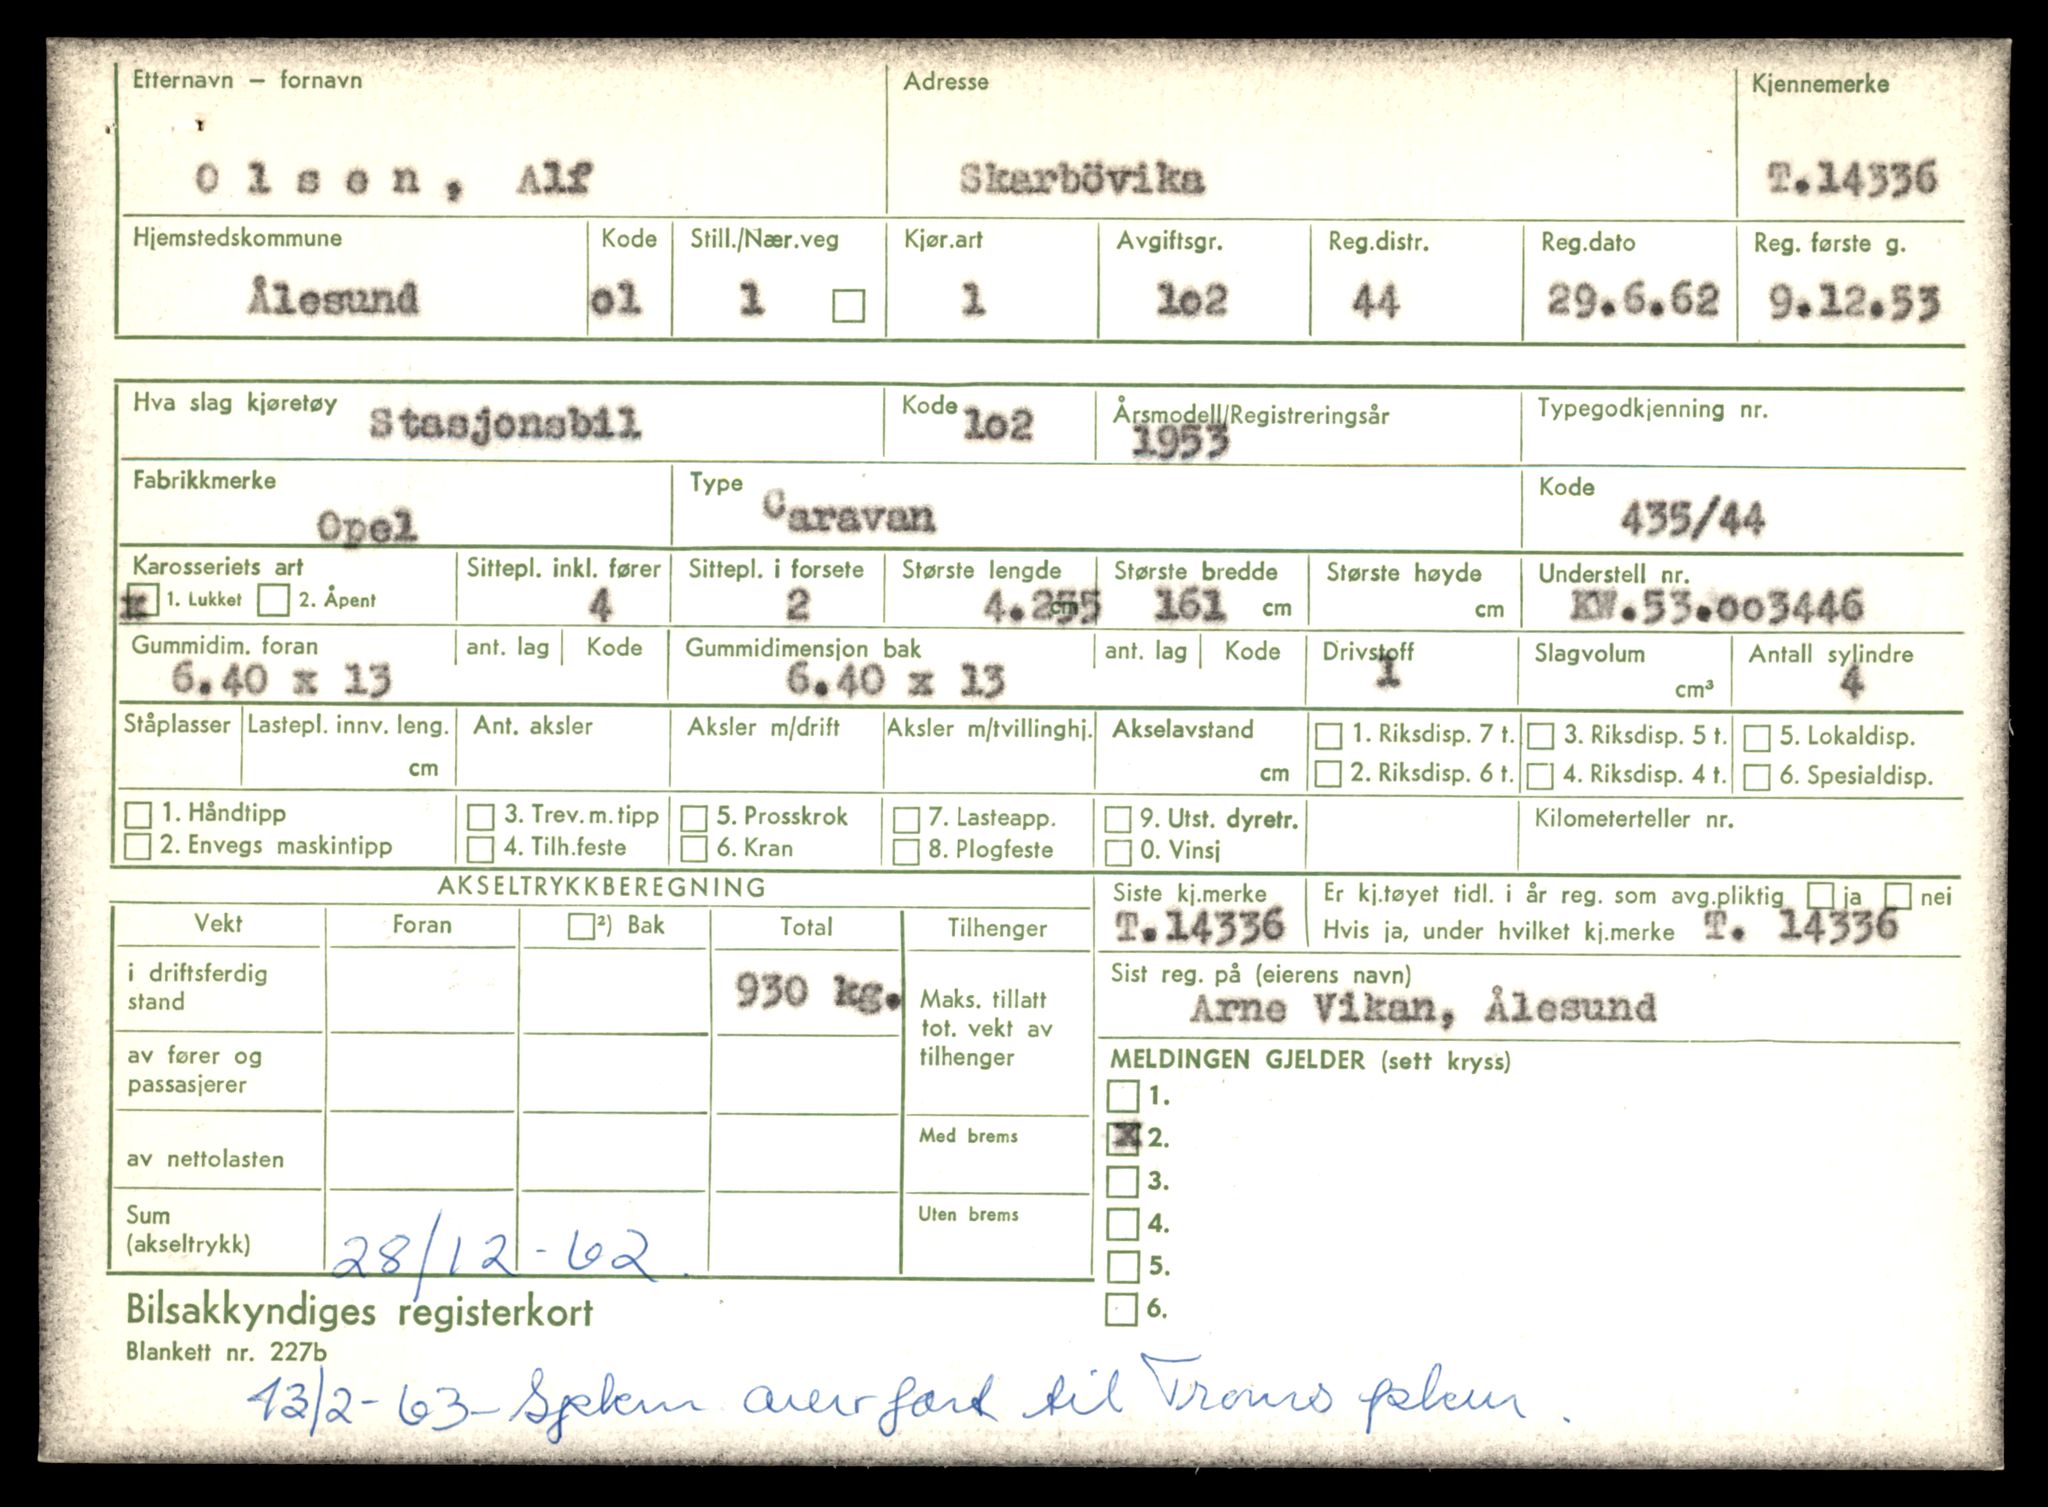 Etternavn – fornavn Adresse Kjennemerke
Olsen, Alf Skarbövika T.14336
Hjemstedskommune Kode Still./Nær.veg Kjør.art Avgiftsgr. Reg.distr. Reg.dato Reg. første g.
Ålesund o1 1 1 1o2 44 29.6.62 9.12.53
Hva slag kjøretøy Stasjonsbil Kode 1o2 Årsmodell/Registreringsår Typegodkjenning nr.
1953
Fabrikkmerke Type Kode
Opel Caravan 435/44
Karosseriets art Sittepl. inkl. fører Sittepl. i forsete Største lengde Største bredde Største høyde Understell nr.
x 1. Lukket 2. Åpent 4 2 4.255 cm 161 cm cm KW.53.oo3446
Gummidim. foran ant. lag Kode Gummidimensjon bak ant. lag Kode Drivstoff Slagvolum Antall sylindre
6.40 x 13 6.40 x 13 1 cm³ 4
Ståplasser Lastepl. innv. leng. Ant. aksler Aksler m/drift Aksler m/tvillinghj. Akselavstand 1. Riksdisp. 7 t. 3. Riksdisp. 5 t. 5. Lokaldisp.
cm cm 2. Riksdisp. 6 t. 4. Riksdisp. 4 t. 6. Spesialdisp.
1. Håndtipp 3. Trev. m. tipp 5. Prosskrok 7. Lasteapp. 9. Utst. dyretr. Kilometerteller nr.
2. Envegs maskintipp 4. Tilh.feste 6. Kran 8. Plogfeste 0. Vinsj
AKSELTRYKKBEREGNING Siste kj.merke Er kj.tøyet tidl. i år reg. som avg.pliktig ja nei
Vekt Foran ²) Bak Total Tilhenger T.14336 Hvis ja, under hvilket kj.merke T. 14336
i driftsferdig stand 930 kg. Maks. tillatt tot. vekt av tilhenger
Sist reg. på (eierens navn)
Arne Vikan, Ålesund
av fører og passasjerer
MELDINGEN GJELDER (sett kryss)
1.
Med brems x 2.
av nettolasten 3.
Sum (akseltrykk) 28/12-62. Uten brems 4.
5.
6.
Bilsakkyndiges registerkort
Blankett nr. 227b
13/2-63- overført til Troms